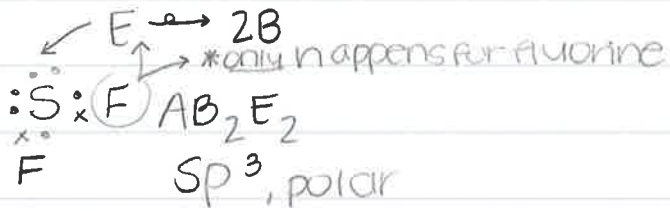 E → 2B
*only happens for fluorine
:S:F AB₂E₂
F Sp³, polar